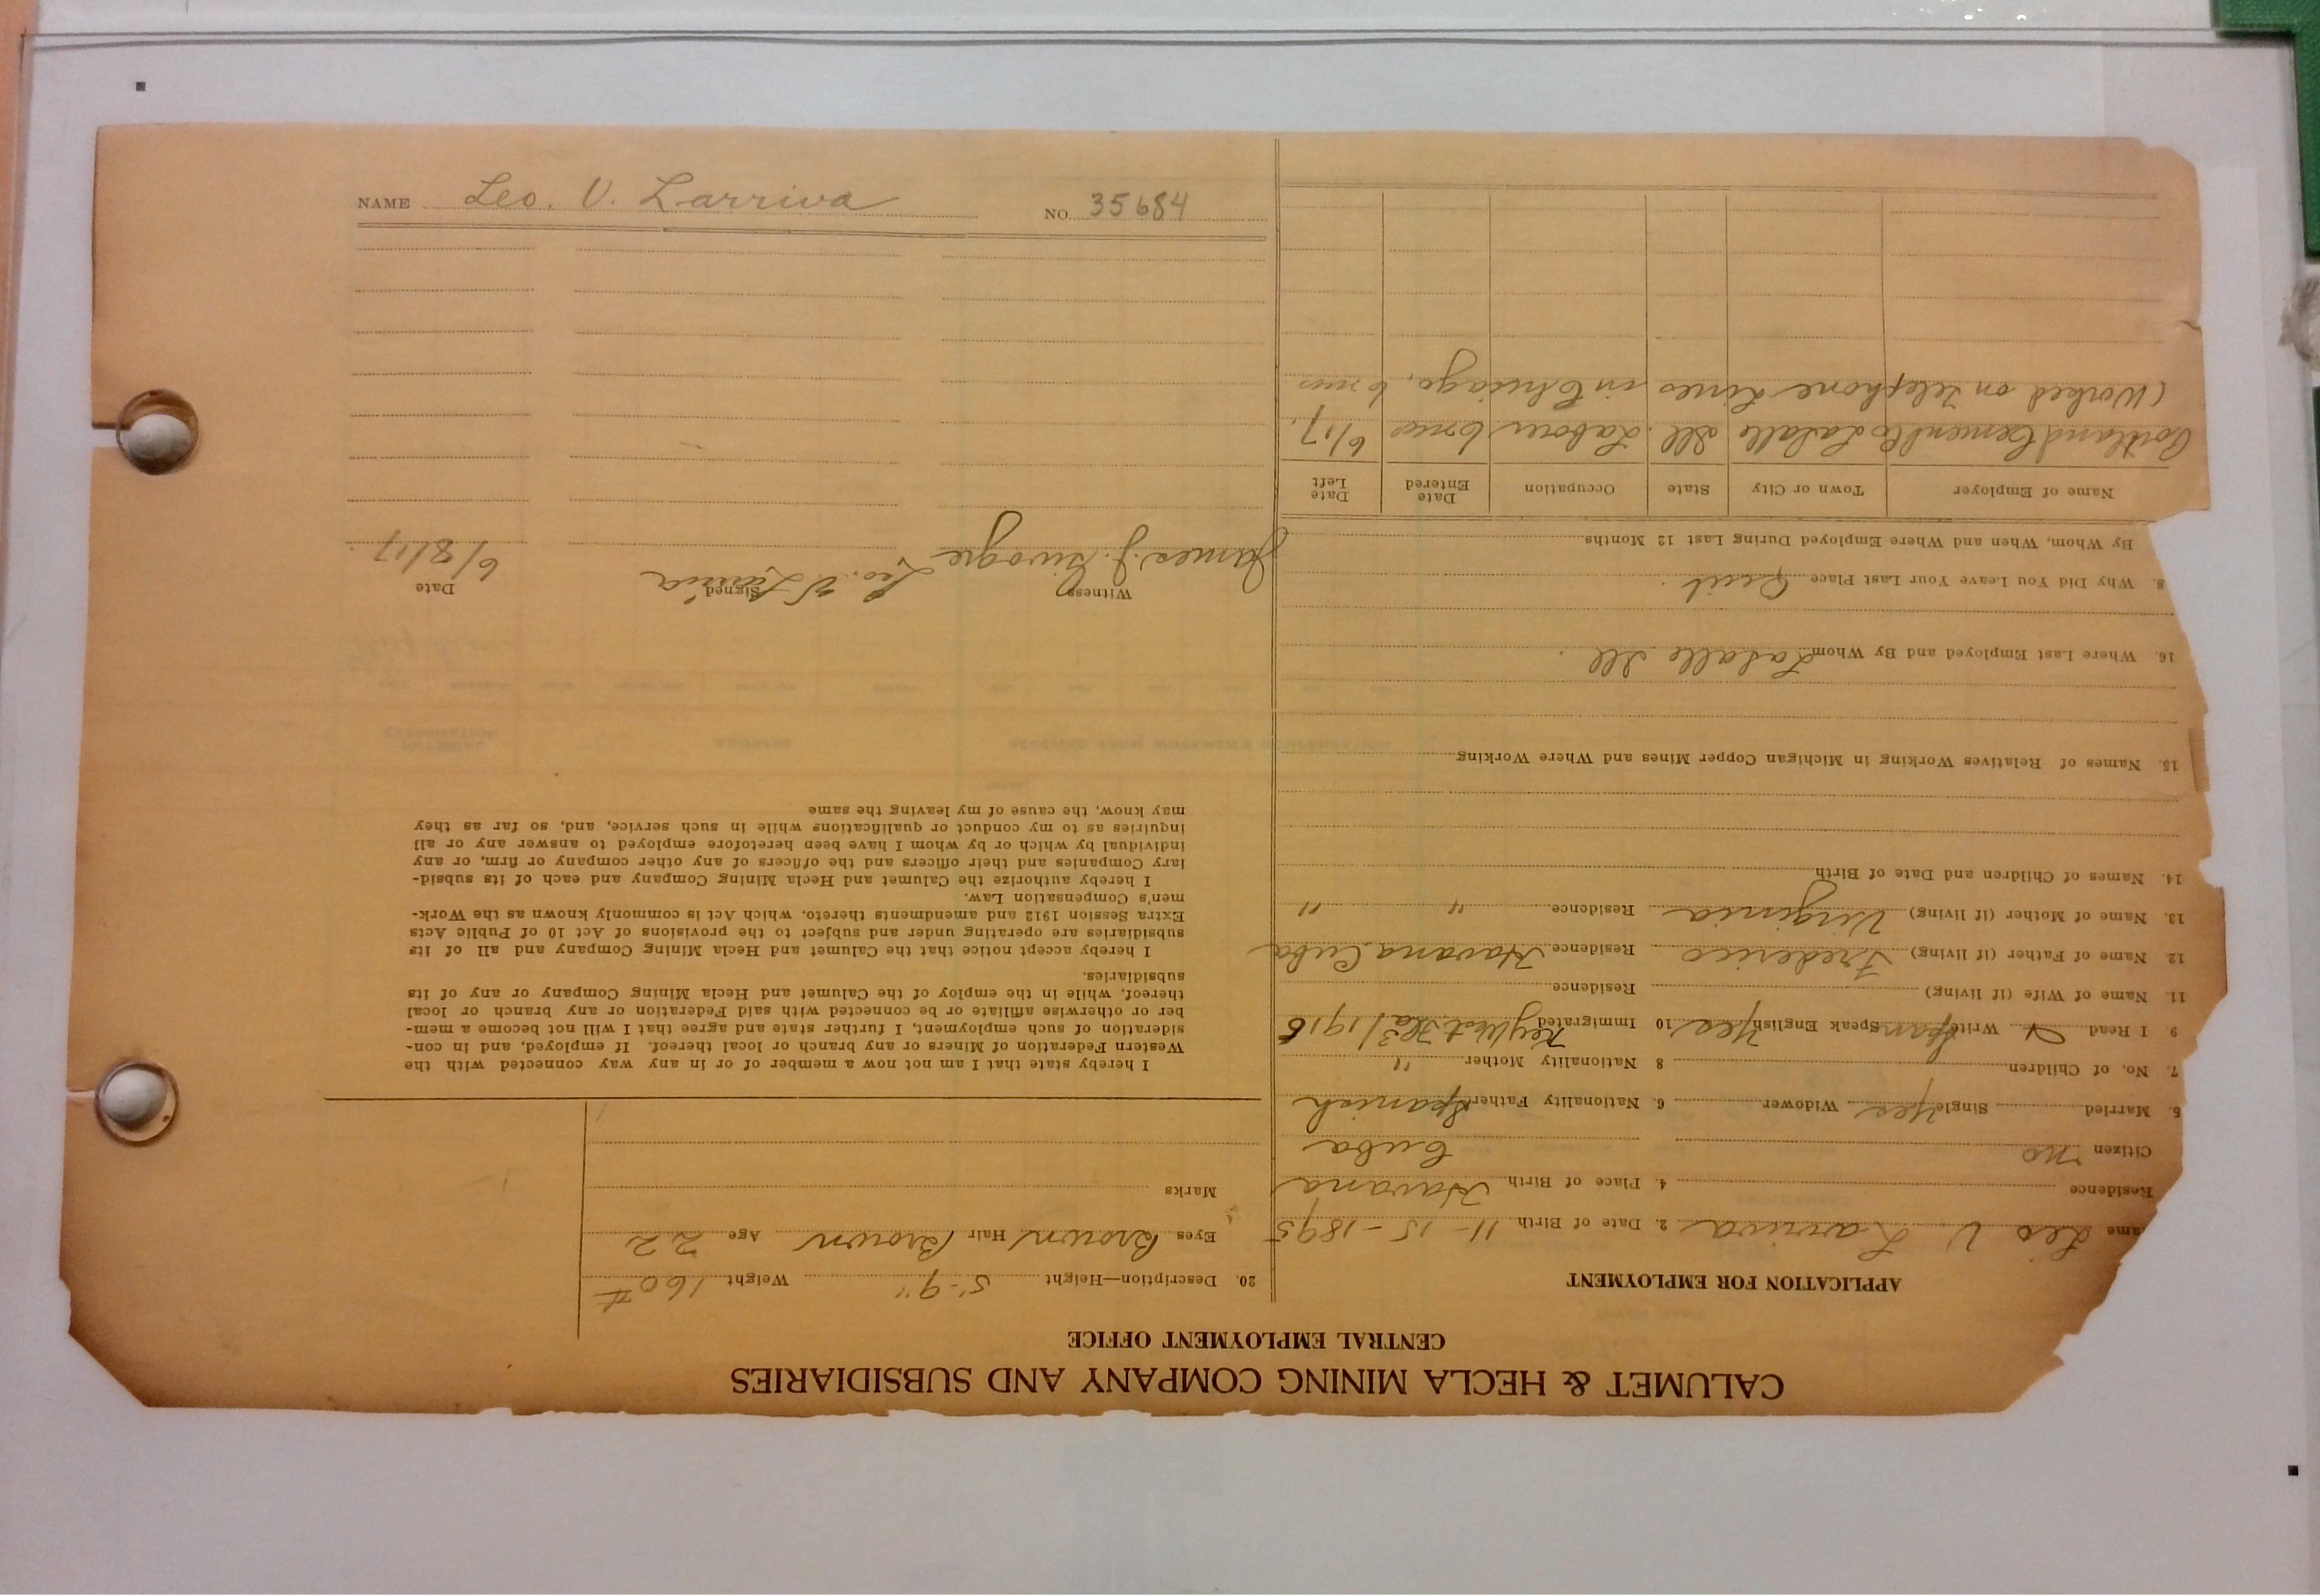 CALUMET & HECLA MINING COMPANY AND SUBSIDIARIES
CENTRAL EMPLOYMENT OFFICE
APPLICATION FOR EMPLOYMENT
ame Leo V. Larriva 2. Date of Birth 11-15-1895
Residence 4. Place of Birth Havana
Citizen no Cuba
5. Married Single Yes Widower 6. Nationality Father Spanish
7. No. of Children 8 Nationality Mother "
9 I Read Write Span Speak English Yes 10 Immigrated Key West Fla
11. Name of Wife (if living) Residence
12. Name of Father (if living) Frederico Residence Havana Cuba
13. Name of Mother (if living) Virginia Residence " "
14. Names of Children and Date of Birth
15. Names of Relatives Working in Michigan Copper Mines and Where Working
16. Where Last Employed and By Whom LaSalle Ill.
8. Why Did You Leave Your Last Place Quit.
By Whom, When and Where Employed During Last 12 Months
Name of Employer Town or City State Occupation Date Entered Date Left
Portland Cement Co LaSalle Ill. Labour 6 mos 6/17.
(Worked on Telephone Lines in Chicago, 6 mos
20. Description—Height 5'-9" Weight 160 #
Eyes Brown Hair Brown Age 22
Marks
I hereby state that I am not now a member of or in any way connected with the
Western Federation of Miners or any branch or local thereof. If employed, and in con-
sideration of such employment, I further state and agree that I will not become a mem-
ber or otherwise affiliate or be connected with said Federation or any branch or local
thereof, while in the employ of the Calumet and Hecla Mining Company or any of its
subsidiaries.
I hereby accept notice that the Calumet and Hecla Mining Company and all of its
subsidiaries are operating under and subject to the provisions of Act 10 of Public Acts
Extra Session 1912 and amendments thereto, which Act is commonly known as the Work-
men's Compensation Law.
I hereby authorize the Calumet and Hecla Mining Company and each of its subsid-
iary Companies and their officers and the officers of any other company or firm, or any
individual by which or by whom I have been heretofore employed to answer any or all
inquiries as to my conduct or qualifications while in such service, and, so far as they
may know, the cause of my leaving the same
Witness Signed Date
James J. Leo. V Larriva 6/8/17
NAME Leo. V. Larriva NO. 35684